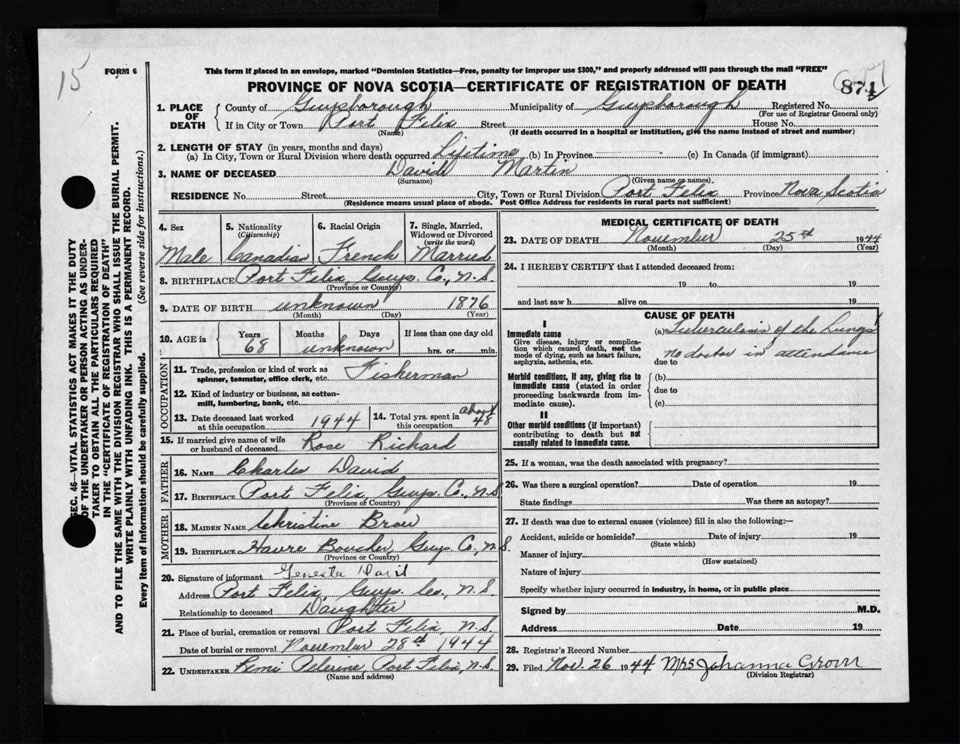 15
FORM 6
This form if placed in an envelope, marked "Dominion Statistics—Free, penalty for improper use $300," and properly addressed will pass through the mail "FREE"
PROVINCE OF NOVA SCOTIA—CERTIFICATE OF REGISTRATION OF DEATH
874
SEC. 46—VITAL STATISTICS ACT MAKES IT THE DUTY
OF THE UNDERTAKER OR PERSON ACTING AS UNDER-
TAKER TO OBTAIN ALL THE PARTICULARS REQUIRED
IN THE "CERTIFICATE OF REGISTRATION OF DEATH"
AND TO FILE THE SAME WITH THE DIVISION REGISTRAR WHO SHALL ISSUE THE BURIAL PERMIT.
WRITE PLAINLY WITH UNFADING INK. THIS IS A PERMANENT RECORD.
Every Item of Information should be carefully supplied. (See reverse side for instructions.)
1. PLACE OF DEATH County of Guysborough Municipality of Guysborough Registered No.
(For use of Registrar General only)
If in City or Town Port Felix Street House No.
(Name) (If death occurred in a hospital or institution, give the name instead of street and number)
2. LENGTH OF STAY (in years, months and days)
(a) In City, Town or Rural Division where death occurred Lifetime (b) In Province (c) In Canada (if immigrant)
3. NAME OF DECEASED David Martin
(Surname) (Given name or names)
RESIDENCE No. Street City, Town or Rural Division Port Felix Province Nova Scotia
(Residence means usual place of abode. Post Office Address for residents in rural parts not sufficient)
4. Sex 5. Nationality (Citizenship) 6. Racial Origin 7. Single, Married, Widowed or Divorced (write the word)
Male Canadian French Married
8. BIRTHPLACE Port Felix, Guys. Co., N.S.
(Province or Country)
9. DATE OF BIRTH unknown 1876
(Month) (Day) (Year)
10. AGE in Years Months Days If less than one day old
68 unknown hrs. or min.
OCCUPATION
11. Trade, profession or kind of work as spinner, teamster, office clerk, etc. Fisherman
12. Kind of industry or business, as cotton-mill, lumbering, bank, etc.
13. Date deceased last worked at this occupation 1944 14. Total yrs. spent in this occupation about 48
15. If married give name of wife or husband of deceased Rose Richard
FATHER
16. NAME Charles David
17. BIRTHPLACE Port Felix, Guys. Co., N.S.
(Province or Country)
MOTHER
18. MAIDEN NAME Christine Brow
19. BIRTHPLACE Havre Boucher, Guys. Co., N.S.
(Province or Country)
20. Signature of informant David
Address Port Felix, Guys. Co., N.S.
Relationship to deceased Daughter
21. Place of burial, cremation or removal Port Felix, N.S.
Date of burial or removal November 28th 1944
22. UNDERTAKER Remi Pelrine Port Felix, N.S.
(Name and address)
MEDICAL CERTIFICATE OF DEATH
23. DATE OF DEATH November 25th 1944
(Month) (Day) (Year)
24. I HEREBY CERTIFY that I attended deceased from:
19 to 19
and last saw h alive on 19
CAUSE OF DEATH
I
Immediate cause
Give disease, injury or complication which caused death, not the mode of dying, such as heart failure, asphyxia, asthenia, etc.
(a) Tuberculosis of the Lungs
no doctor in attendance
due to
Morbid conditions, if any, giving rise to immediate cause (stated in order proceeding backwards from immediate cause).
(b)
due to
(c)
II
Other morbid conditions (if important) contributing to death but not causally related to immediate cause.
25. If a woman, was the death associated with pregnancy?
26. Was there a surgical operation? Date of operation 19
State findings Was there an autopsy?
27. If death was due to external causes (violence) fill in also the following:—
Accident, suicide or homicide? Date of injury 19
(State which)
Manner of injury
(How sustained)
Nature of injury
Specify whether injury occurred in industry, in home, or in public place
Signed by M.D.
Address Date 19
28. Registrar's Record Number
29. Filed Nov. 26 1944 Mrs Johanna
(Division Registrar)